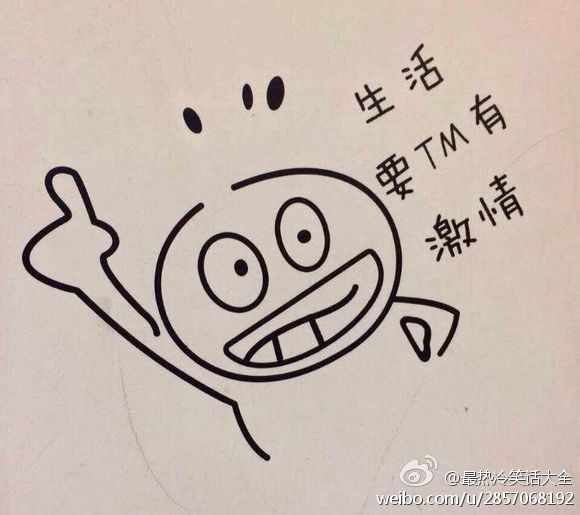 生活
要TM有
激情
@最热冷笑话大全
weibo.com/u/2857068192